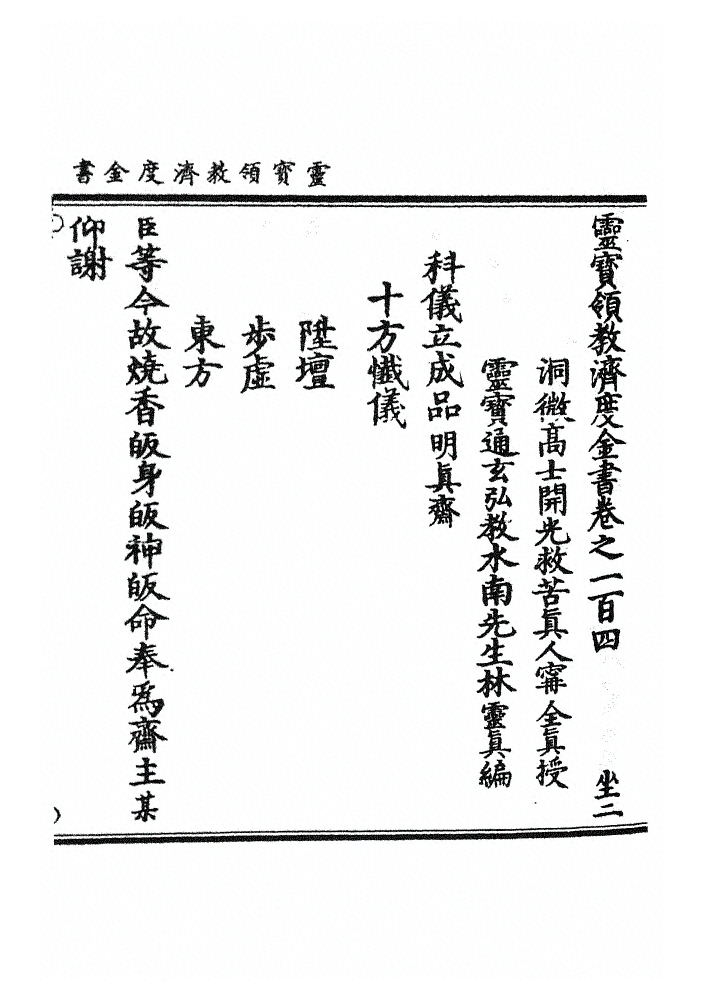 靈寶領教濟度金書
靈寶領教濟度金書卷之一百四 坐二
洞微高士開光救苦眞人寗全眞授
靈寶通玄弘教水南先生林靈眞編
科儀立成品明眞齋
十方懺儀
陞壇
步虛
東方
臣等今故燒香皈身皈神皈命奉爲齋主某
仰謝